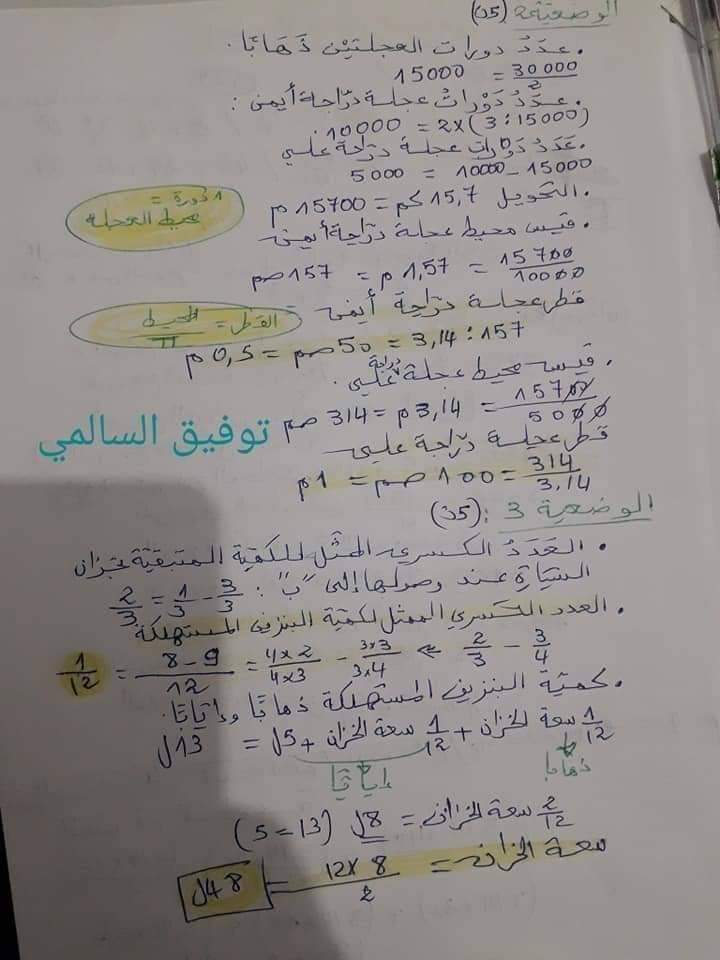 الوضعية (5ن)
. عَدَدُ دورات العجلتيْن ذَهَابًا.
15000 = 30000/2
. عَدَدُ دَوْرَاتُ عجلة درّاجة أيمن :
10000 = 2x(3:15000)
. عَدَدُ دَوْرات عجلة درّاجة علي
5000 = 10000-15000
. التحويل 15,7 كم = 15700 م
1 دورة = محيط العجلة
. قيس محيط عجلة درّاجة أيمن
15700/10000 = 1,57 م = 157 صم
قطر عجلة درّاجة أيمن
القطر = المحيط/π
157 : 3,14 = 50 صم = 0,5 م
. قيس محيط عجلة دراجة علي.
15700/5000 = 3,14 م = 314 صم
توفيق السالمي
قطر عجلة درّاجة علي
314/3,14 = 100 صم = 1 م
الوضعية 3 : (5ن)
. العَدَدُ الكسري الممثّل للكمية المتبقيّة بخزان
السيّارة عند وصولها إلى "ب" : 3/3 - 1/3 = 2/3
. العدد الكسري الممثل لكمية البنزين المستهلكة
3/4 - 2/3 ⇐ 3x3/3x4 - 4x2/4x3 = 8-9/12 = 1/12
. كمية البنزين المستهلكة ذهابًا وإيابًا.
1/12 سعة الخزان + 1/12 سعة الخزان + 5ل = 13ل
ذهابا
إيابا
2/12 سعة الخزان = 8ل (13-5)
سعة الخزان = 12x8/2 = 48ل